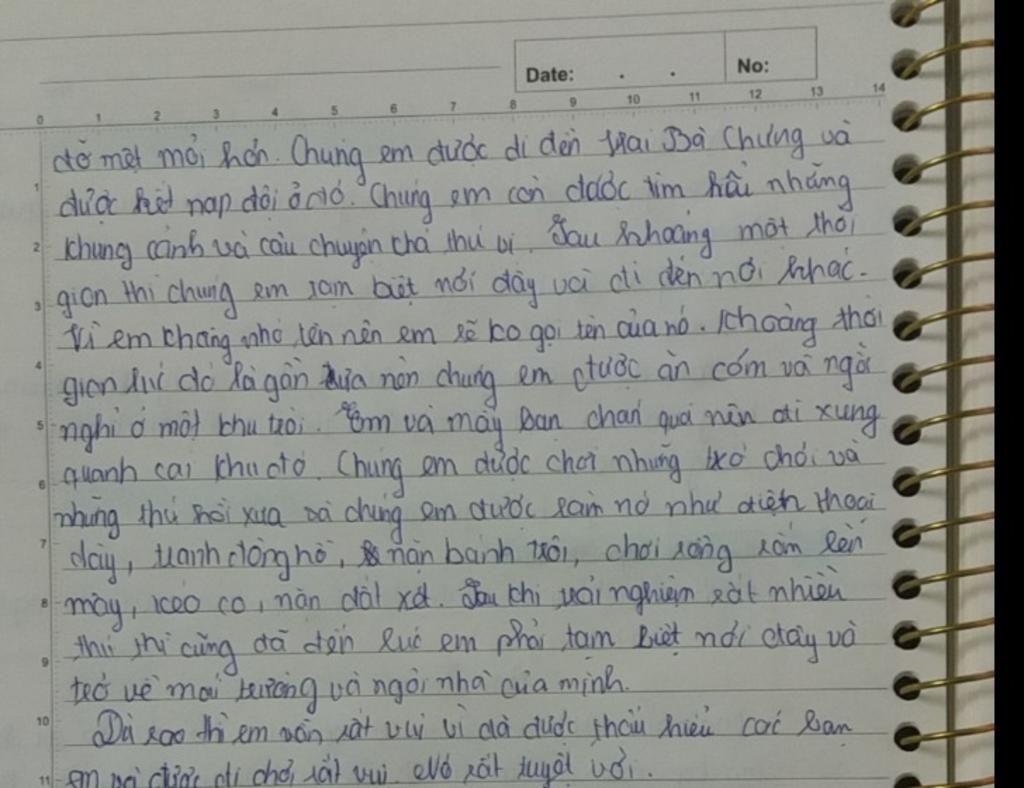 Date: . . No:
0 1 2 3 4 5 6 7 8 9 10 11 12 13 14
đỡ mệt mỏi hơn. Chúng em được đi đến Hai Bà Chưng và
1 được kết nạp đội ở đó. Chúng em còn được tìm hểu những
2 khung cảnh và câu chuyện thú vị. Sau khoảng một thời
3 gian thì chúng em tạm biệt nơi đây và đi đến nơi khác.
Vì em chẳng nhớ tên nên em sẽ ko gọi tên của nó. Khoảng thời
4 gian lúc đó là gần trưa nên chúng em được ăn cơm và ngồi
5 nghỉ ở một khu trời. Em và mấy bạn chán quá nên đi xung
6 quanh cái khu đó. Chúng em được chơi những trò chơi và
những thú hồi xưa và chúng em được làm nó như điện thoại
7 dây, tranh đông hồ, nặn bánh trôi, chơi rồng rắn lên
8 mây, kéo co, nặn đất xét. Sau khi trải nghiệm rất nhiều
9 thứ thì cũng đã đến lúc em phải tạm biệt nơi đây và
trở về mái trường và ngôi nhà của mình.
10 Dù sao thì em vẫn rất vui vì đã được thấu hiểu các bạn
11 em và được đi chơi rất vui. Nó rất tuyệt vời.